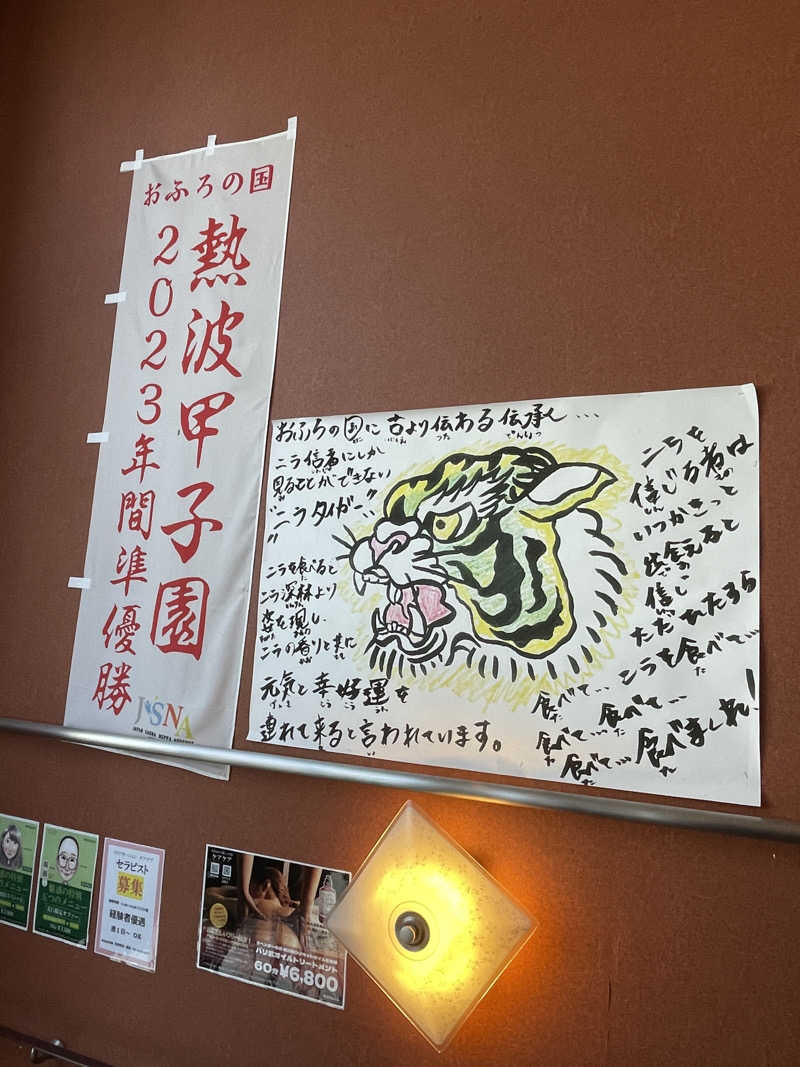 おふろの国
熱波甲子園
2023年間準優勝
JSNA
おふろの国に古より伝わる伝承し...
ニラ信者にしか
見ることができない
"ニラタイガー"
ニラを食べると
ニラ深林より
姿を現し
ニラの香りと共に
元気と幸好運を
連れて来ると言われています。
ニラを
信じる者は
いつかきっと
出会えると
信じ
ただひたすら
ニラを食べて...
食べて...
食べて...
食べて...
食べて...
食べましれ!
セラピスト
募集
経験者優遇
週1日〜OK
ケアケア
バリ式オイルトリートメント
60分¥6,800